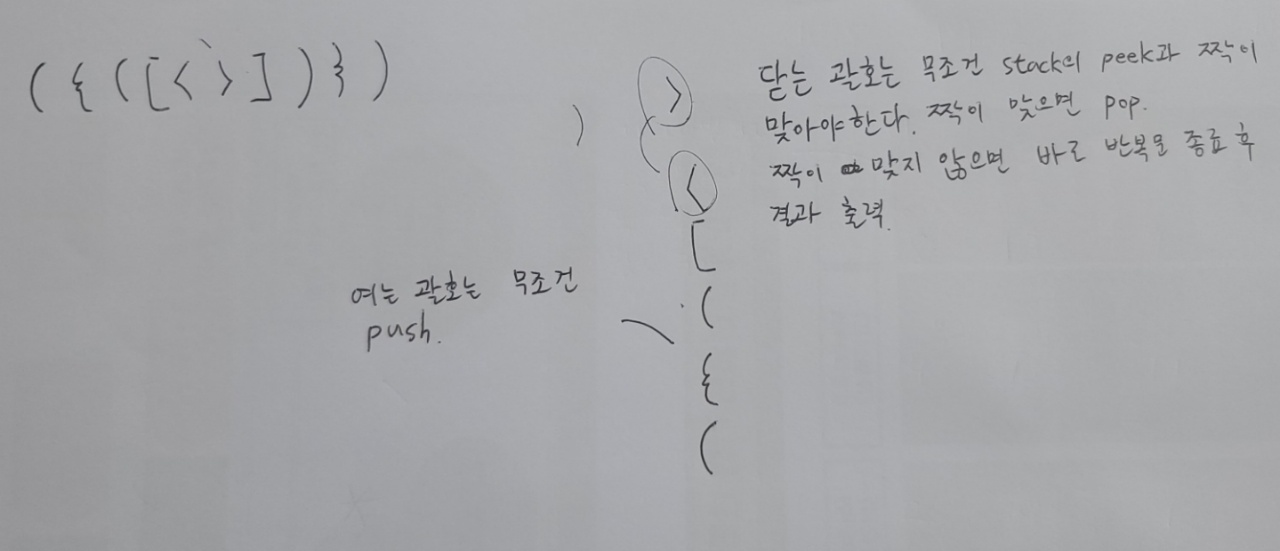 ({([<>])})
닫는 괄호는 무조건 stack의 peek과 짝이
맞아야한다. 짝이 맞으면 pop.
짝이 맞지 않으면 바로 반복문 종료 후
결과 출력.
)
>
<
[
(
{
(
여는 괄호는 무조건
push.